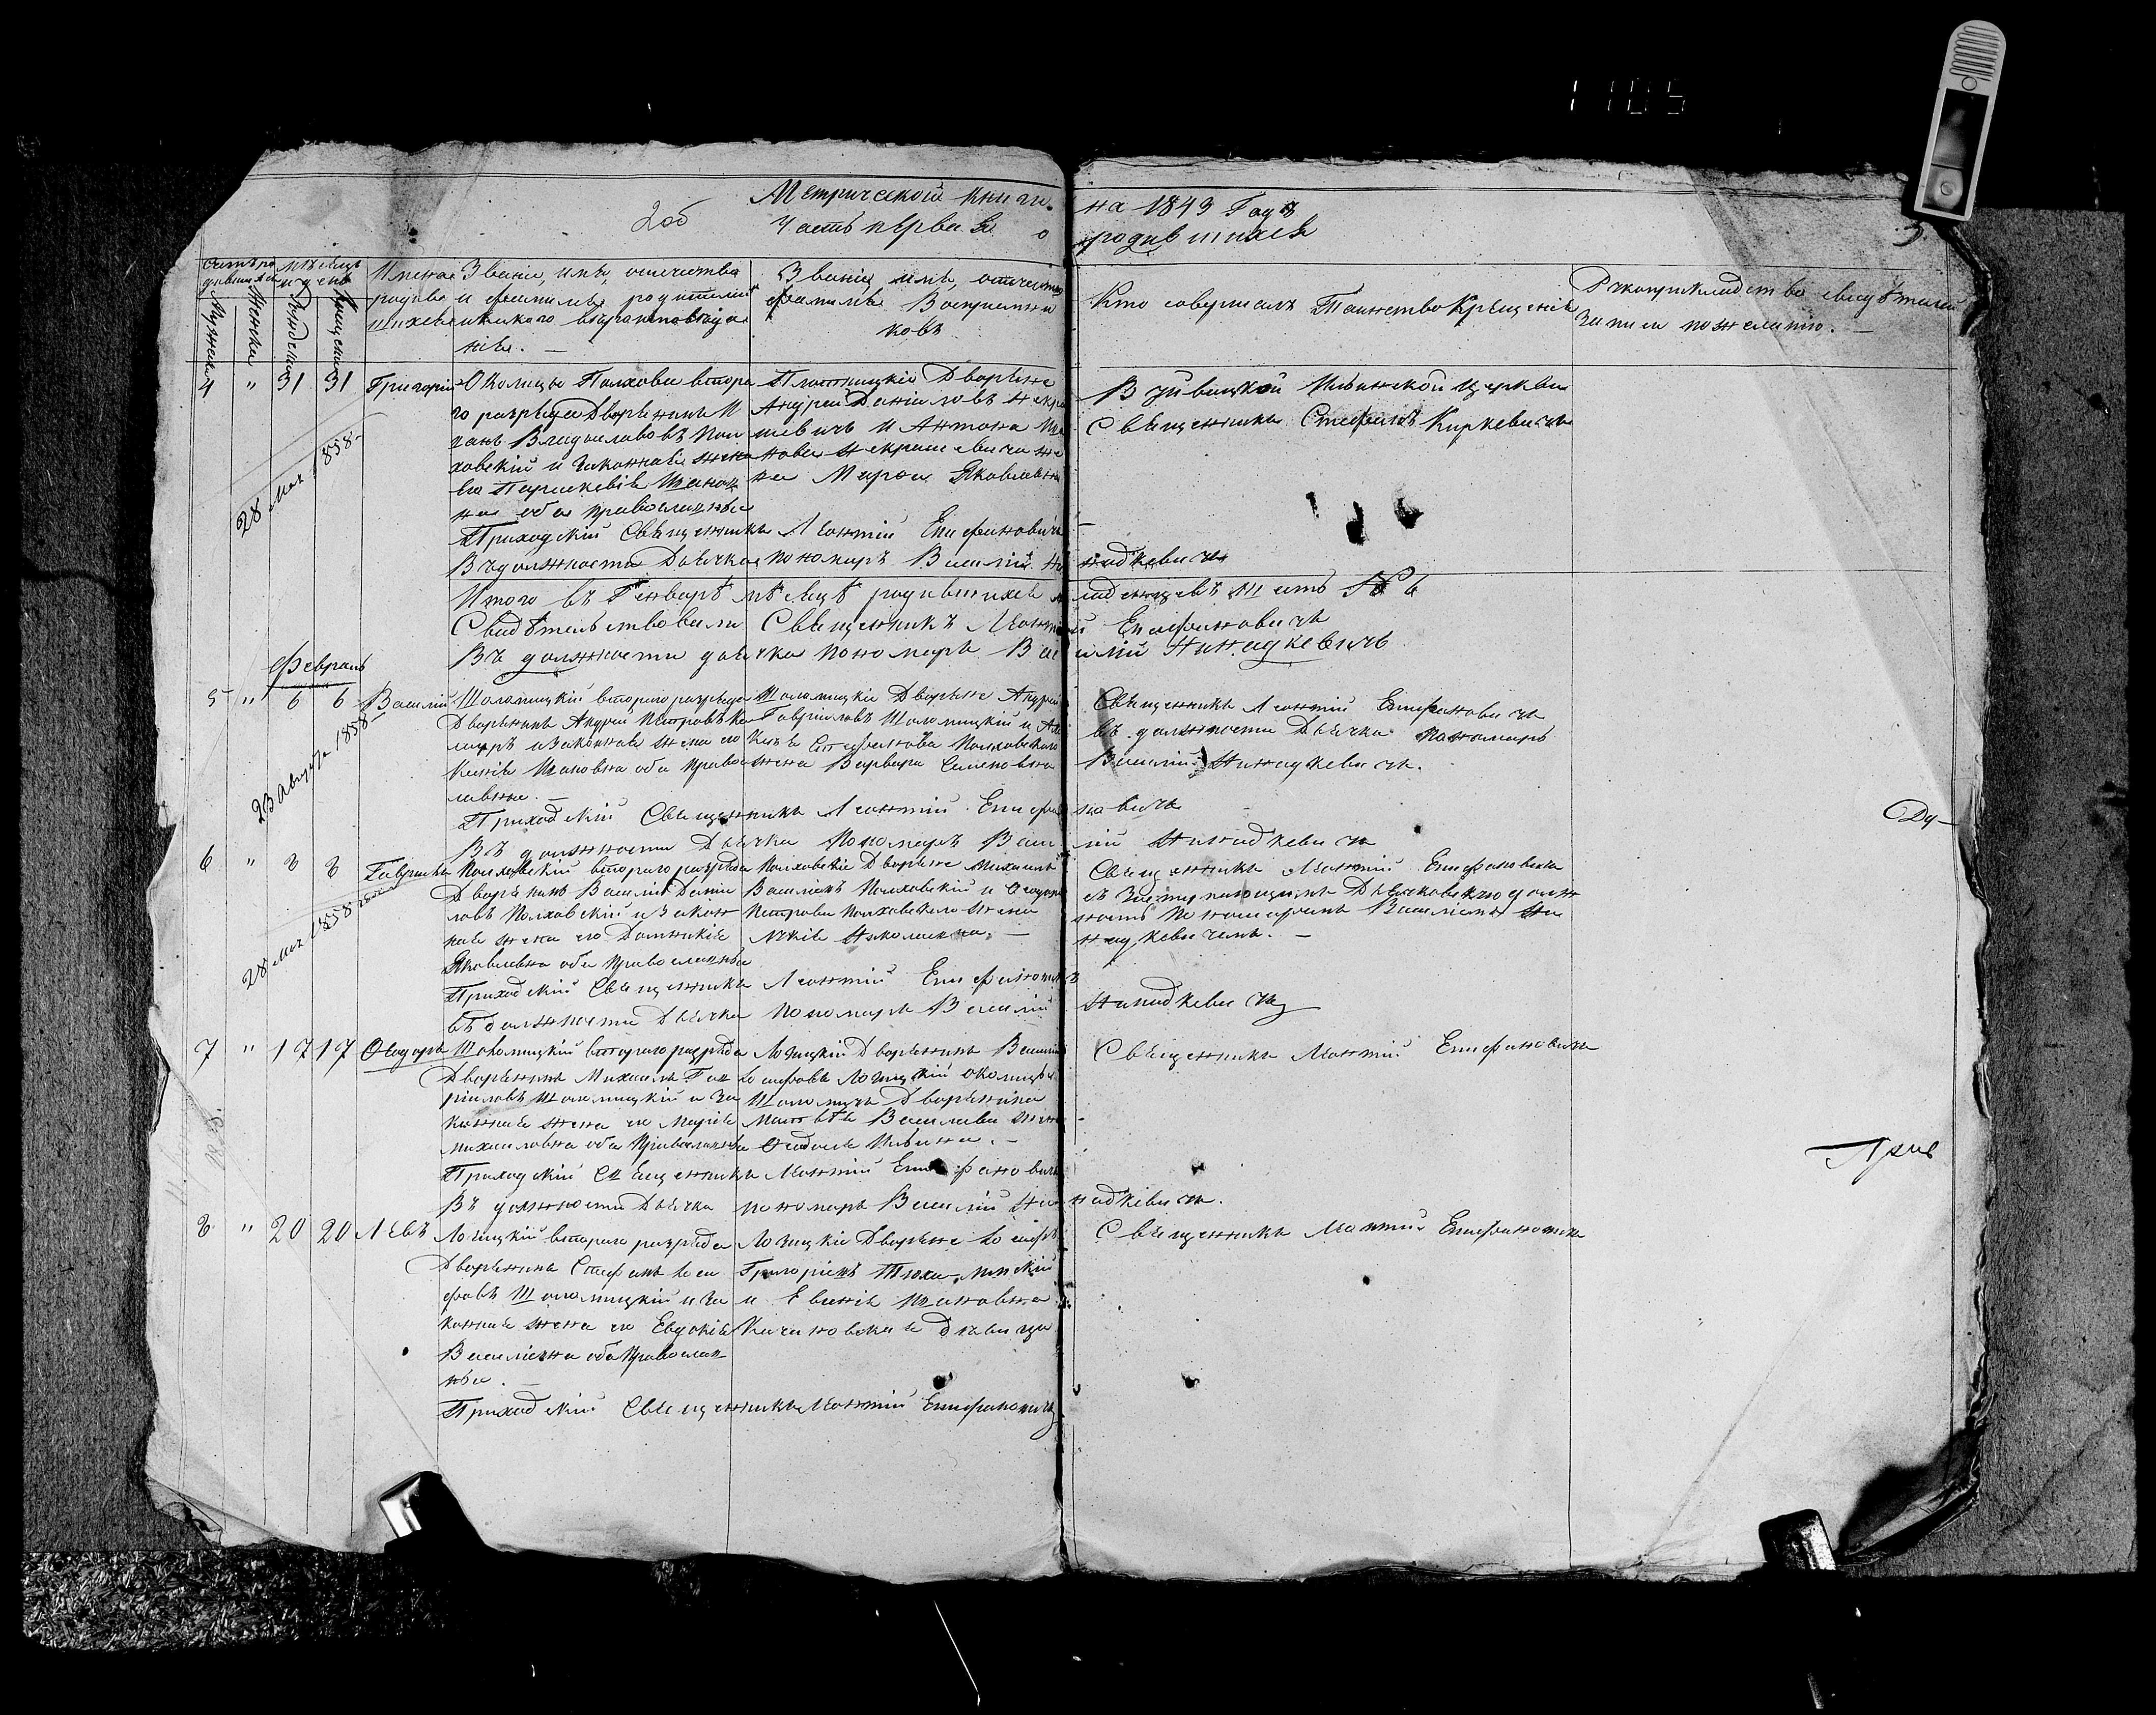 1105
2об
Метрической книги на 1843 Годъ
Часть первая о родившихся
3.
Счетъ родившихся
Мѣсяцъ и день
Имена родившихся
Званіе, имя, отечество и фамилія родителей и какого вѣроисповѣданія. —
Званіе, имя, отечество фамилія Воспріемниковъ
Кто совершалъ Таинство Крещенія
Рукоприкладство свидѣтелей записи по желанію. —
Мужеска
Женска
Рожденія
Крещенія
4 " 31 31 Григорій
28 Мая 1858
Околицы Полхова второ
го разряда Дворянинъ И
ванъ Владиславовъ Пол
ховскій и законная жена
его Параскевія Иванов
на оба православные
Плотницкіе Дворяне
Андрей Даніиловъ Некра
шевичъ и Антона Ива
нова Некрашевича же
на Марѳа Яковлевна
Священникъ Стефанъ Киркевичъ
Приходскій Священникъ Леонтій Епифановичъ
Въ должности Дьячка пономарь Василій Ненадкевичъ
Итого въ Генварѣ мѣсяцѣ родившихся младенцевъ шесть № 6
Свидѣтельствовали Священникъ Леонтій Епифановичъ
Въ должности дьячка пономарь Василій Ненадкевичъ
Февраль
5 " 6 6 Василій
23 Августа 1858
Шоломицкій второго разряда
Дворянинъ Андрей Петровъ Ко
маръ и законная жена его
Ксенія Ивановна оба право
славные. —
Шоломицкіе Дворяне Андрей
Гавріиловъ Шоломицкій и
Стефанова Полховского
жена Варвара Семеновна
Священникъ Леонтій Епифановичъ
въ должности Дьячка пономарь
Василій Ненадкевичъ.
Приходскій Священникъ Леонтій Епифановичъ
Въ должности Дьячка Пономарь Василій Ненадкевичъ
Ду—
6 " 8 8 Гавріилъ
28 Мая 1858 года
Полховскій второго разряда
Дворянинъ Василій Дани
ловъ Полховскій и закон
ная жена его Домникія
Яковлевна оба Православные
Полховскіе Дворяне Михаилъ
Василіевъ Полховскій и Ѳеодора
Петрова Полховского жена
Николаевна. —
Священникъ Леонтій Епифановичъ
съ Дьячковскую долж
ность Пономаремъ Василіемъ Не
надкевичемъ. —
Приходскій Священникъ Леонтій Епифановичъ
въ должности Дьячка пономарь Василій Ненадкевичъ
7 " 17 17 Ѳеодоръ
Шоломицкій второго разряда
Дворянинъ Михаилъ Гав
ріиловъ Шоломицкій и за
конная жена его Марія
Михаиловна оба Православные
Лозицкій Дворянинъ Василій
Іосифовъ Лозицкій околицы
Шоломичъ Дворянина
Матвѣя Василіева жена
Ильина. —
Священникъ Леонтій Епифановичъ
Приходскій Священникъ Леонтій Епифановичъ
Въ должности Дьячка пономарь Василій Ненадкевичъ.
8 " 20 20 Левъ
Лозицкій второго разряда
Дворянинъ Стефанъ Іоси
фовъ Шоломицкій и за
конная жена его Евдокія
Василіевна оба Православ
ные. —
Лозицкіе Дворяне Іосифъ
Григоріевъ
и Евгенія Ивановна
дѣвица
Священникъ Леонтій Епифановичъ
Приходскій Священникъ Леонтій Епифановичъ